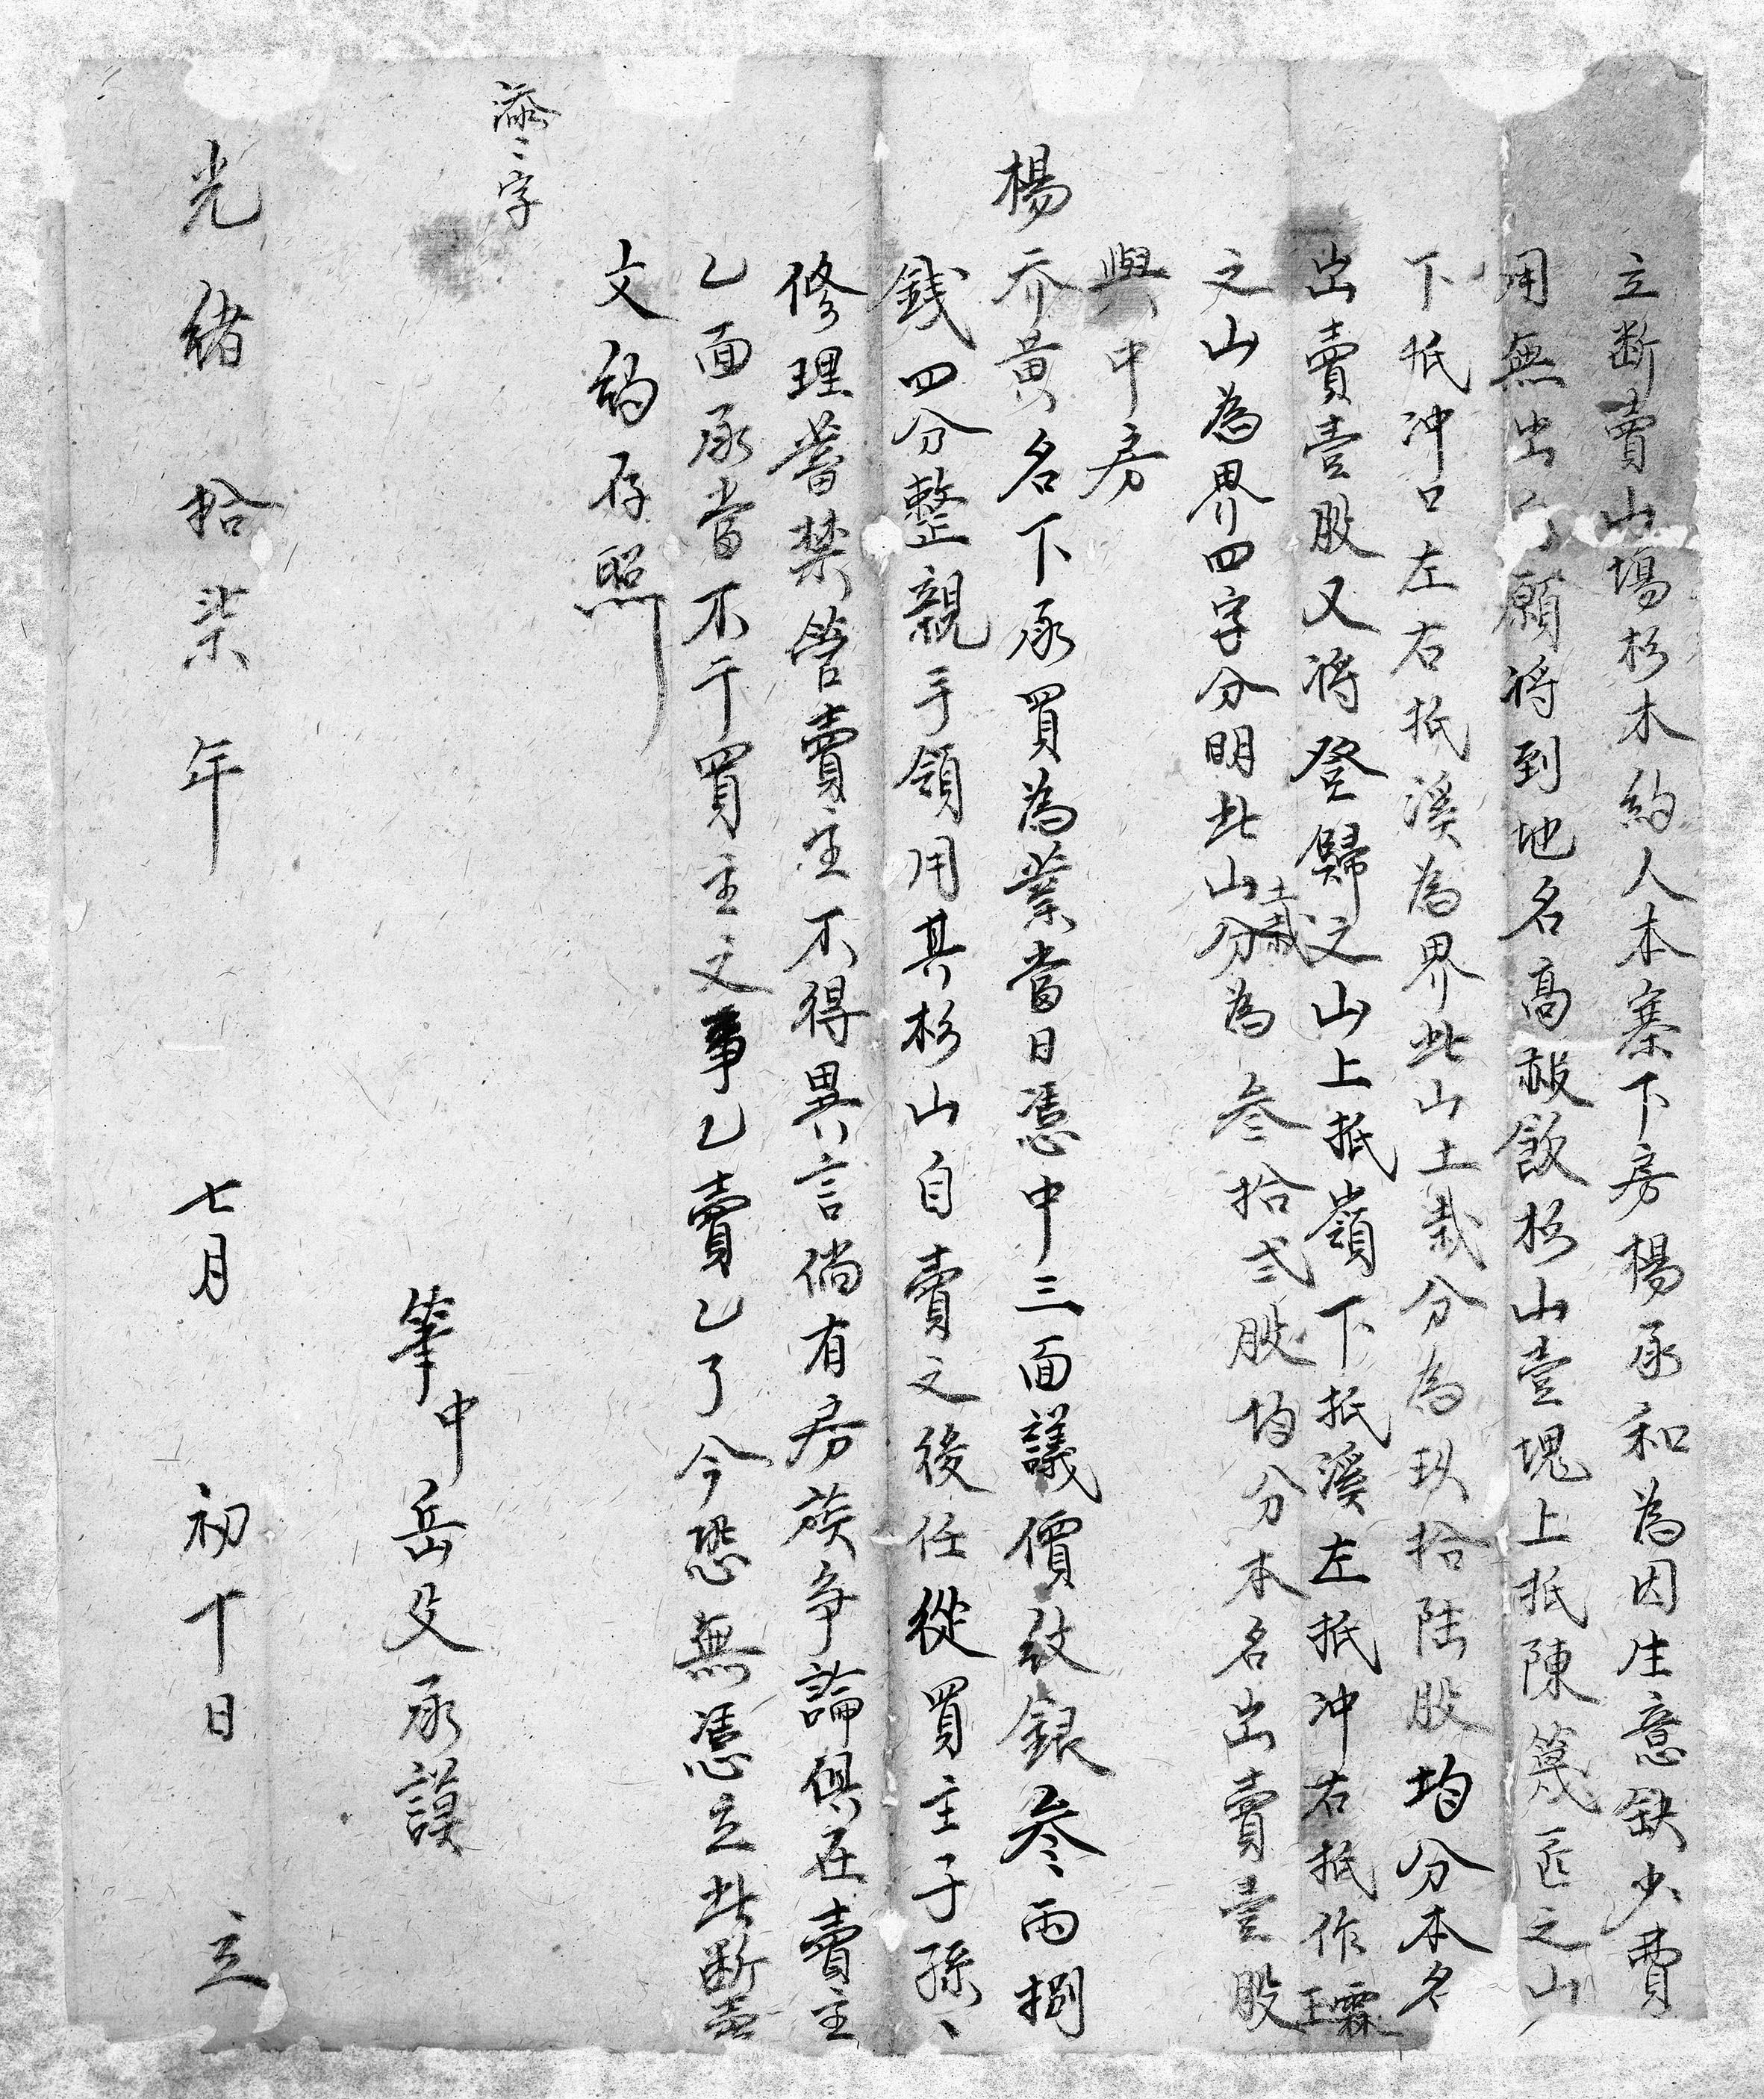 立断賣山塲杉木約人本寨下房楊承和為因生意缺少費
用無出願将到地名高敖飲杉山壹塊上抵陳篾匠之山
下抵冲口左右抵溪為界此山土栽分為玖拾陆股均分本名
出賣壹股又将登歸之山上抵嶺下抵溪左抵冲右抵作霖
之山為界四字分明此山土栽分為叁拾弍股均分本名出賣壹股
與中房
楊介黄名下承買為業當日憑中三面議價紋銀叁両捌
錢四分整親手領用其杉山自賣之後任從買主子孫〻
修理蓄禁管賣主不得異言倘有房族争論俱在賣主
乙面承當不干買主之事乙賣乙了今恐無憑立此断賣
文約存照
添二字
筆中岳父承謨
光緒拾柒年七月初十日立